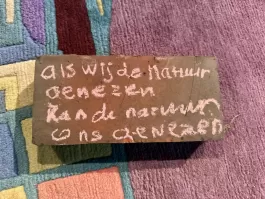 als wij de natuur
genezen
kan de natuur
ons genezen